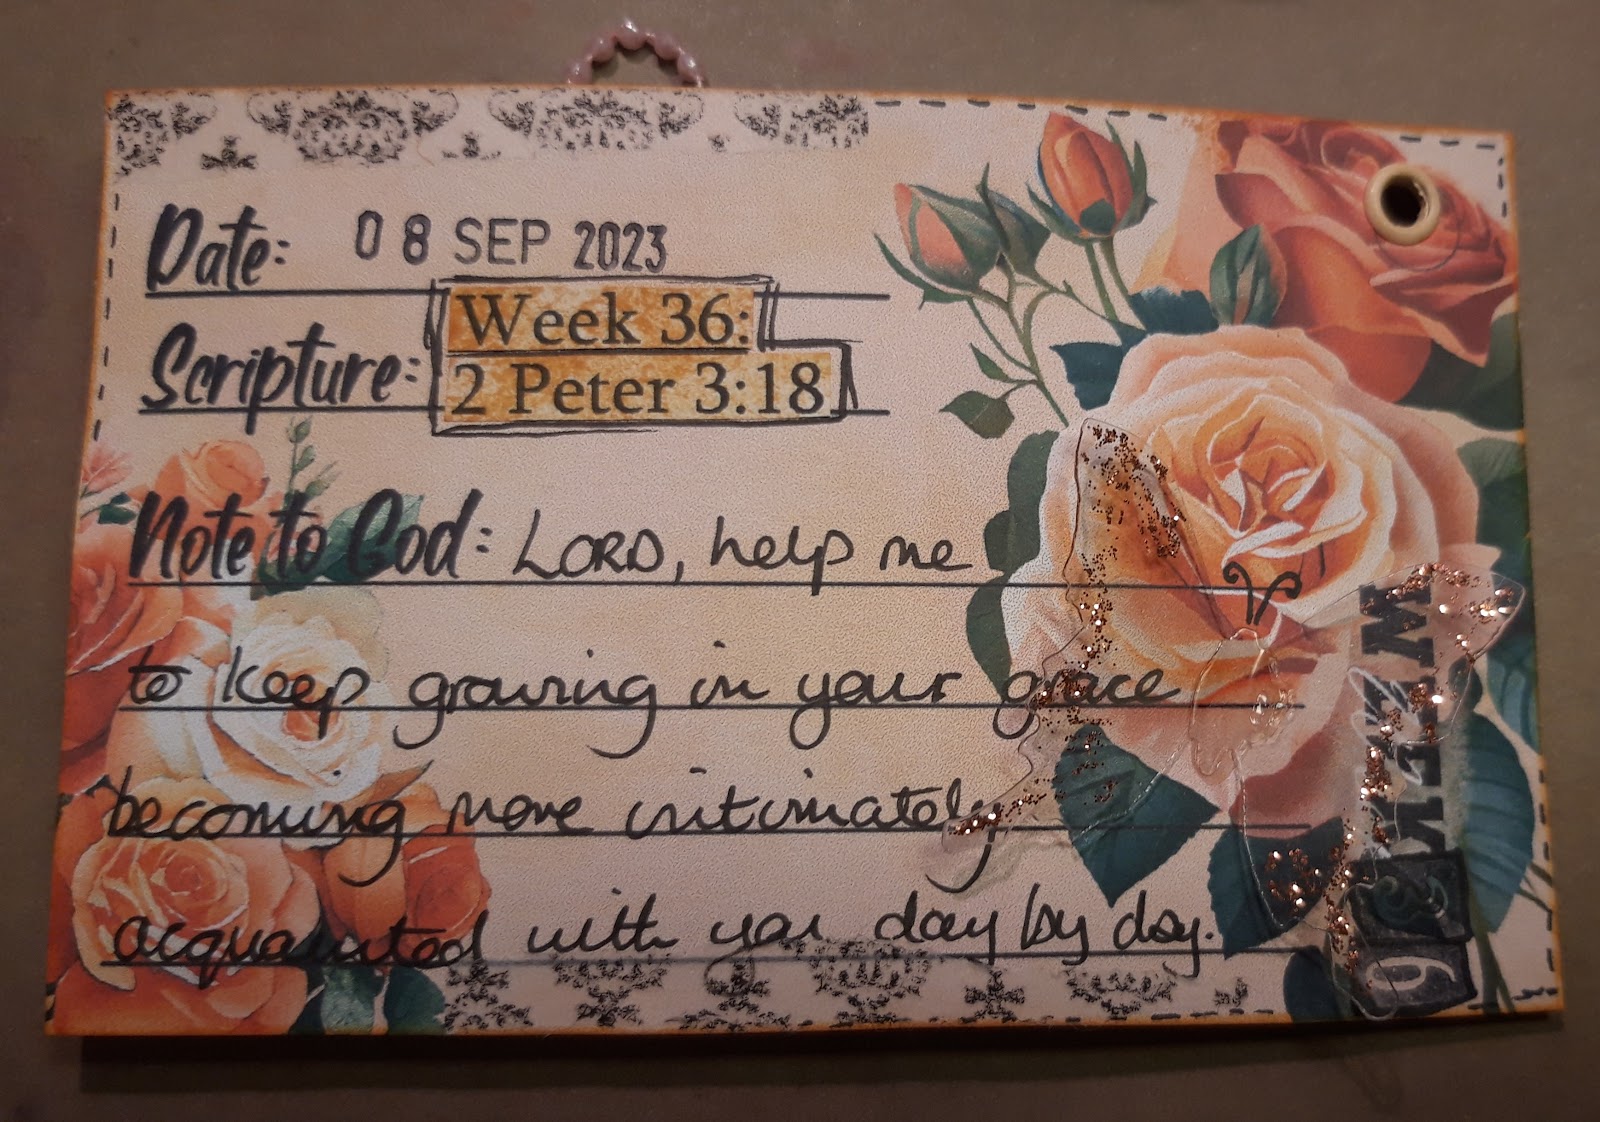 Date: 08 SEP 2023
Week 36:
Scripture: 2 Peter 3:18
Note to God: LORD, help me
to keep growing in your grace
becoming more intimately
acquainted with you day by day.
WEEK
36